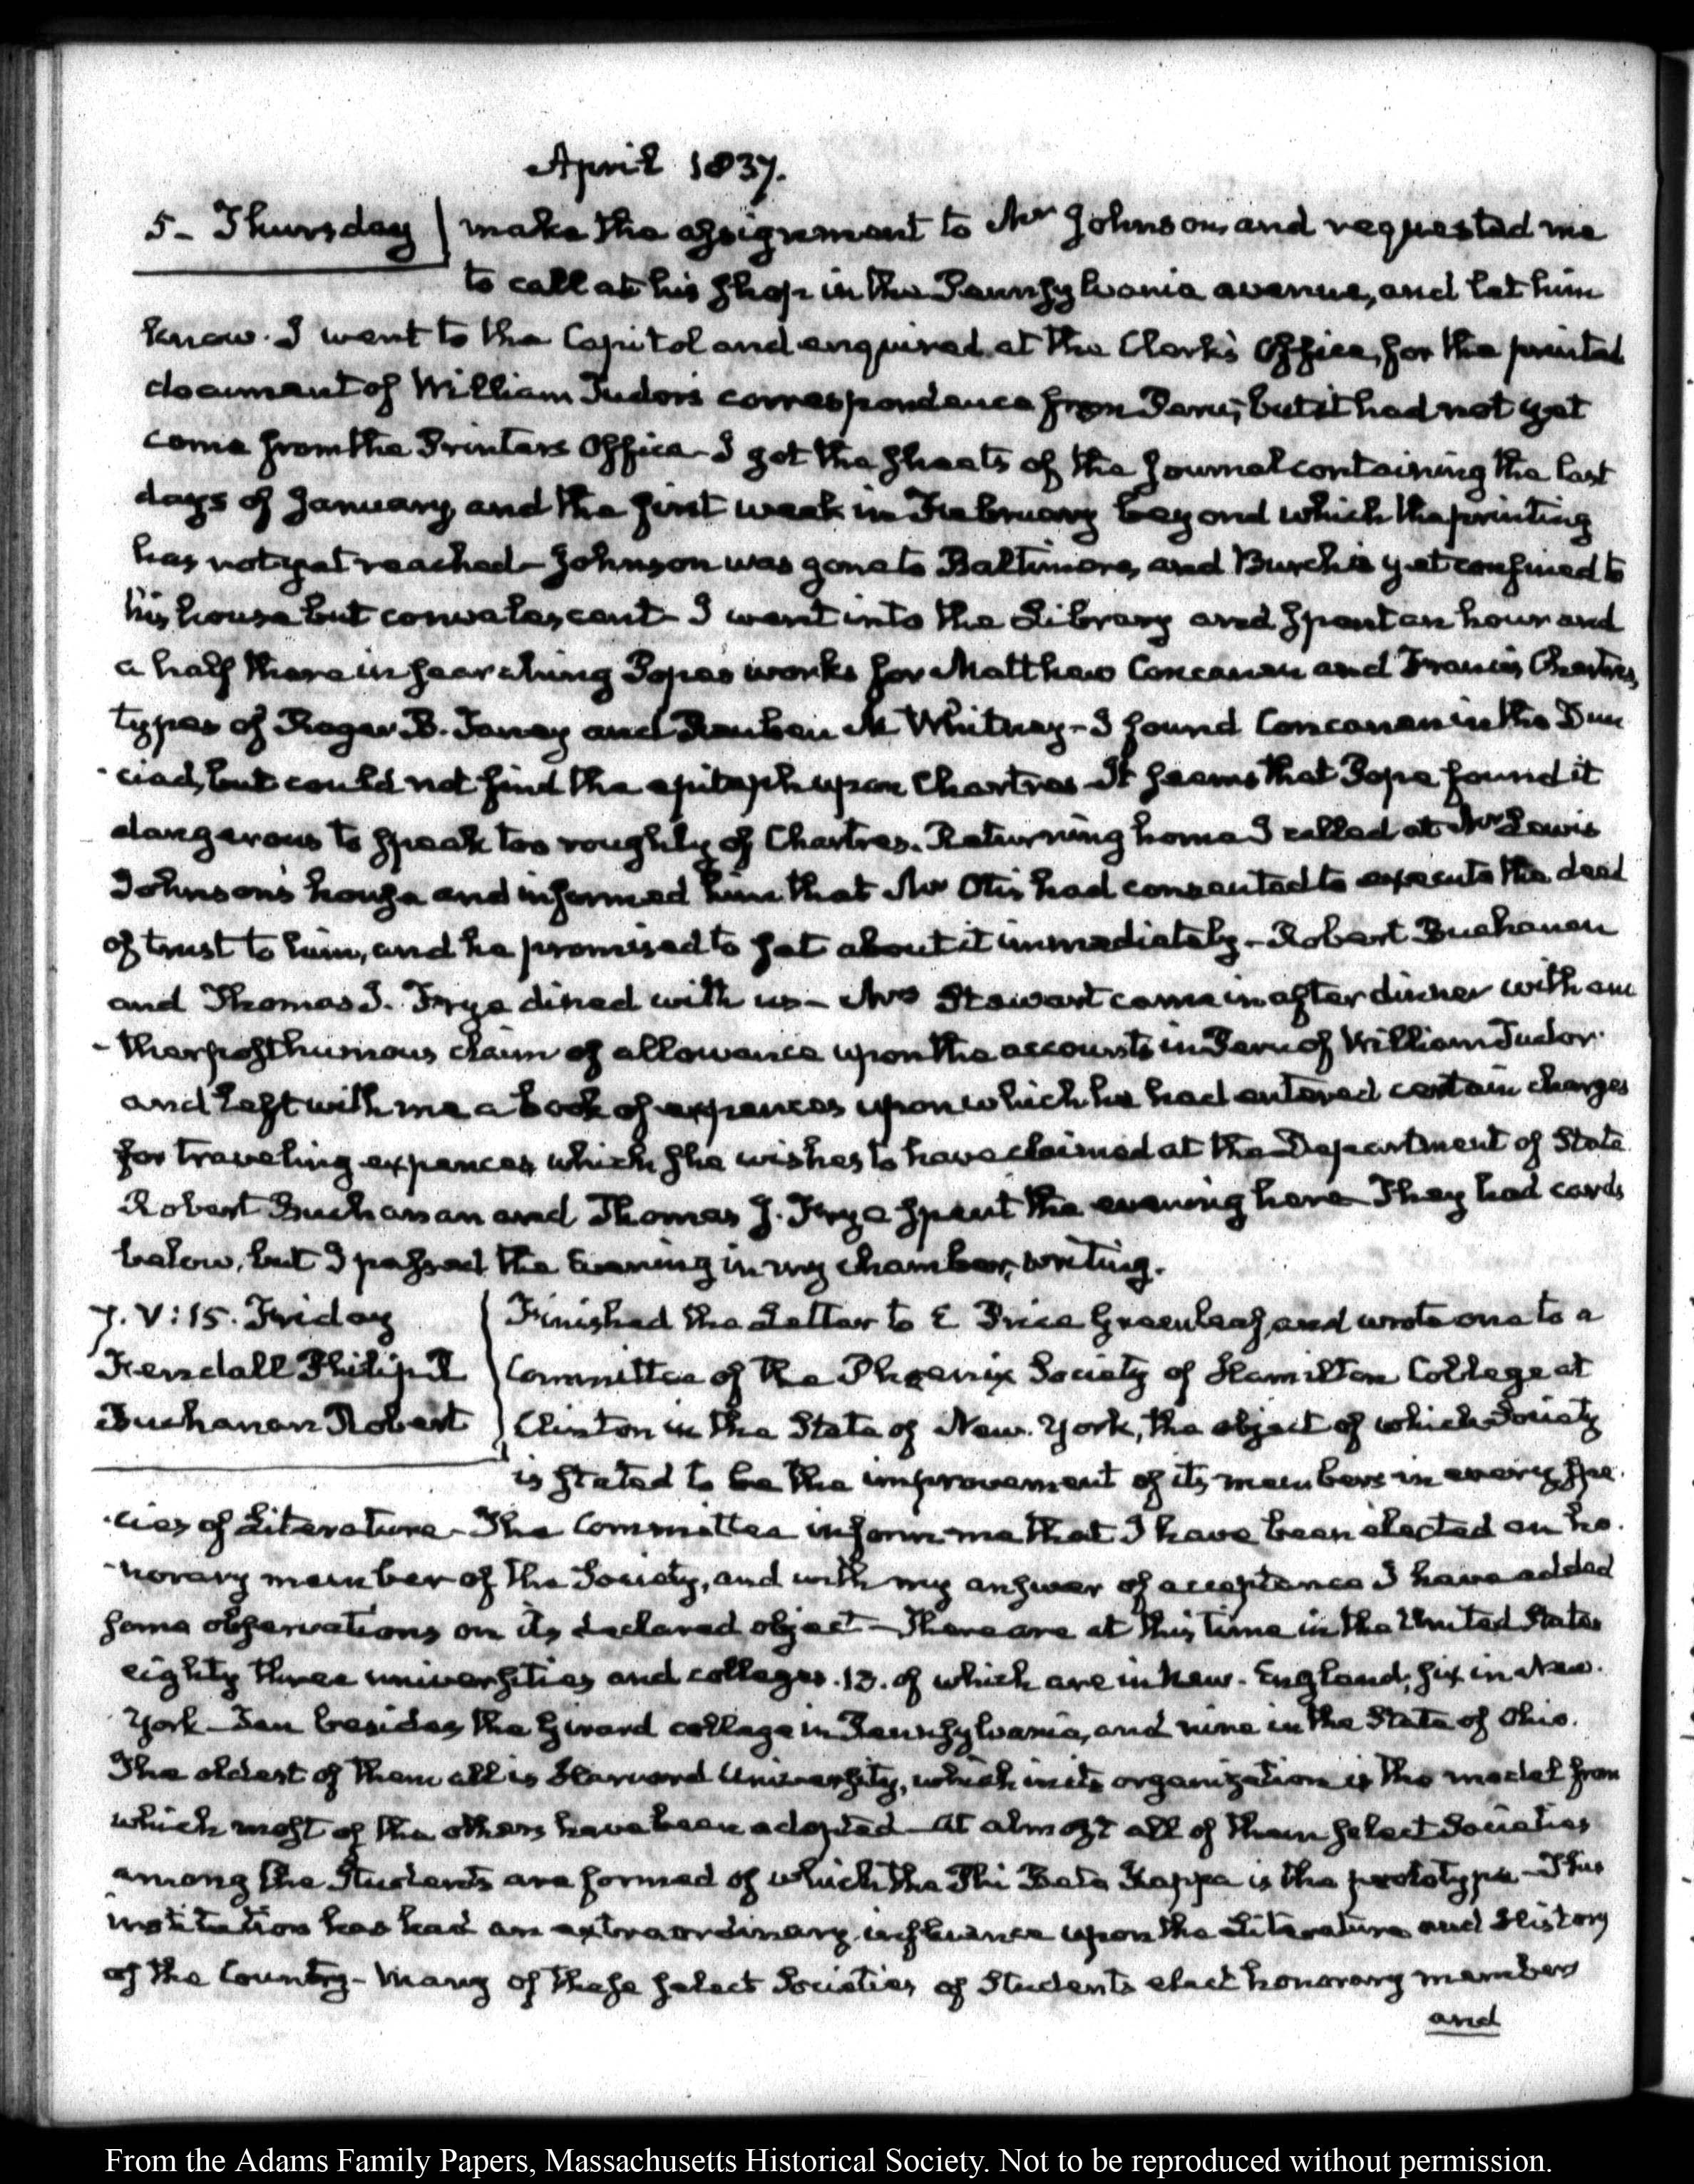 April 1837.
5- Thursday
make the assignment to Mr Johnson, and requested me
to call at his shop in the Pennsylvania avenue, and let him
know. I went to the Capitol and enquired at the Clerk's Office, for the printed
document of William Tudor's correspondence from Peru; but it had not yet
come from the Printers Office - I got the sheets of the Journal containing the last
days of January, and the first week in February beyond which the printing
has not yet reached - Johnson was gone to Baltimore, and Burch is yet confined to
his house but convalescent - I went into the Library and spent an hour and
a half there in searching Popes works for Matthew Concanen and Francis Chartres,
types of Roger B. Taney and Reuben M Whitney - I found Concanen in the Dun
-ciad, but could not find the epitaph upon Chartres - It seems that Pope found it
dangerous to speak too roughly of Chartres. Returning home I called at Mr Lewis
Johnson's house and informed him that Mr Otis had consented to execute the deed
of trust to him, and he promised to set about it immediately - Robert Buchanan
and Thomas J. Frye dined with us - Mrs Stewart came in after dinner with ano
-ther posthumous claim of allowance upon the accounts in Peru of William Tudor
and left with me a book of expences upon which he had entered certain charges
for traveling expences, which she wishes to have claimed at the Department of State.
Robert Buchanan and Thomas J. Frye spent the evening here They had cards
below, but I passed the Evening in my chamber, writing.
7. V:15. Friday
Fendall Philip R
Buchanan Robert
Finished the Letter to E Price Greenleaf, and wrote one to a
Committee of the Phoenix Society of Hamilton College at
Clinton in the State of New-York, the object of which Society
is stated to be the improvement of its members in every spe-
-cies of Literature - The Committee inform me that I have been elected an ho-
-norary member of the Society, and with my answer of acceptance I have added
some observations on its declared object - There are at this time in the United States
eighty three universities and colleges. 13. of which are in New-England; six in New-
York - Ten besides the Girard college in Pennsylvania, and nine in the State of Ohio.
The oldest of them all is Harvard University, which in its organization is the model from
which most of the others have been adopted - At almost all of them select Societies
among the Students are formed of which the Phi Beta Kappa is the prototype - This
institution has had an extraordinary influence upon the Literature and History
of the Country - Many of these select Societies of Students elect honorary members
and
From the Adams Family Papers, Massachusetts Historical Society. Not to be reproduced without permission.